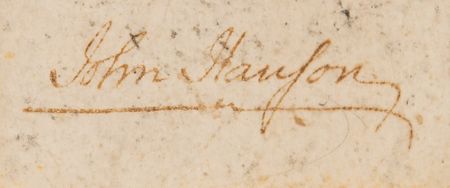 John Hanson